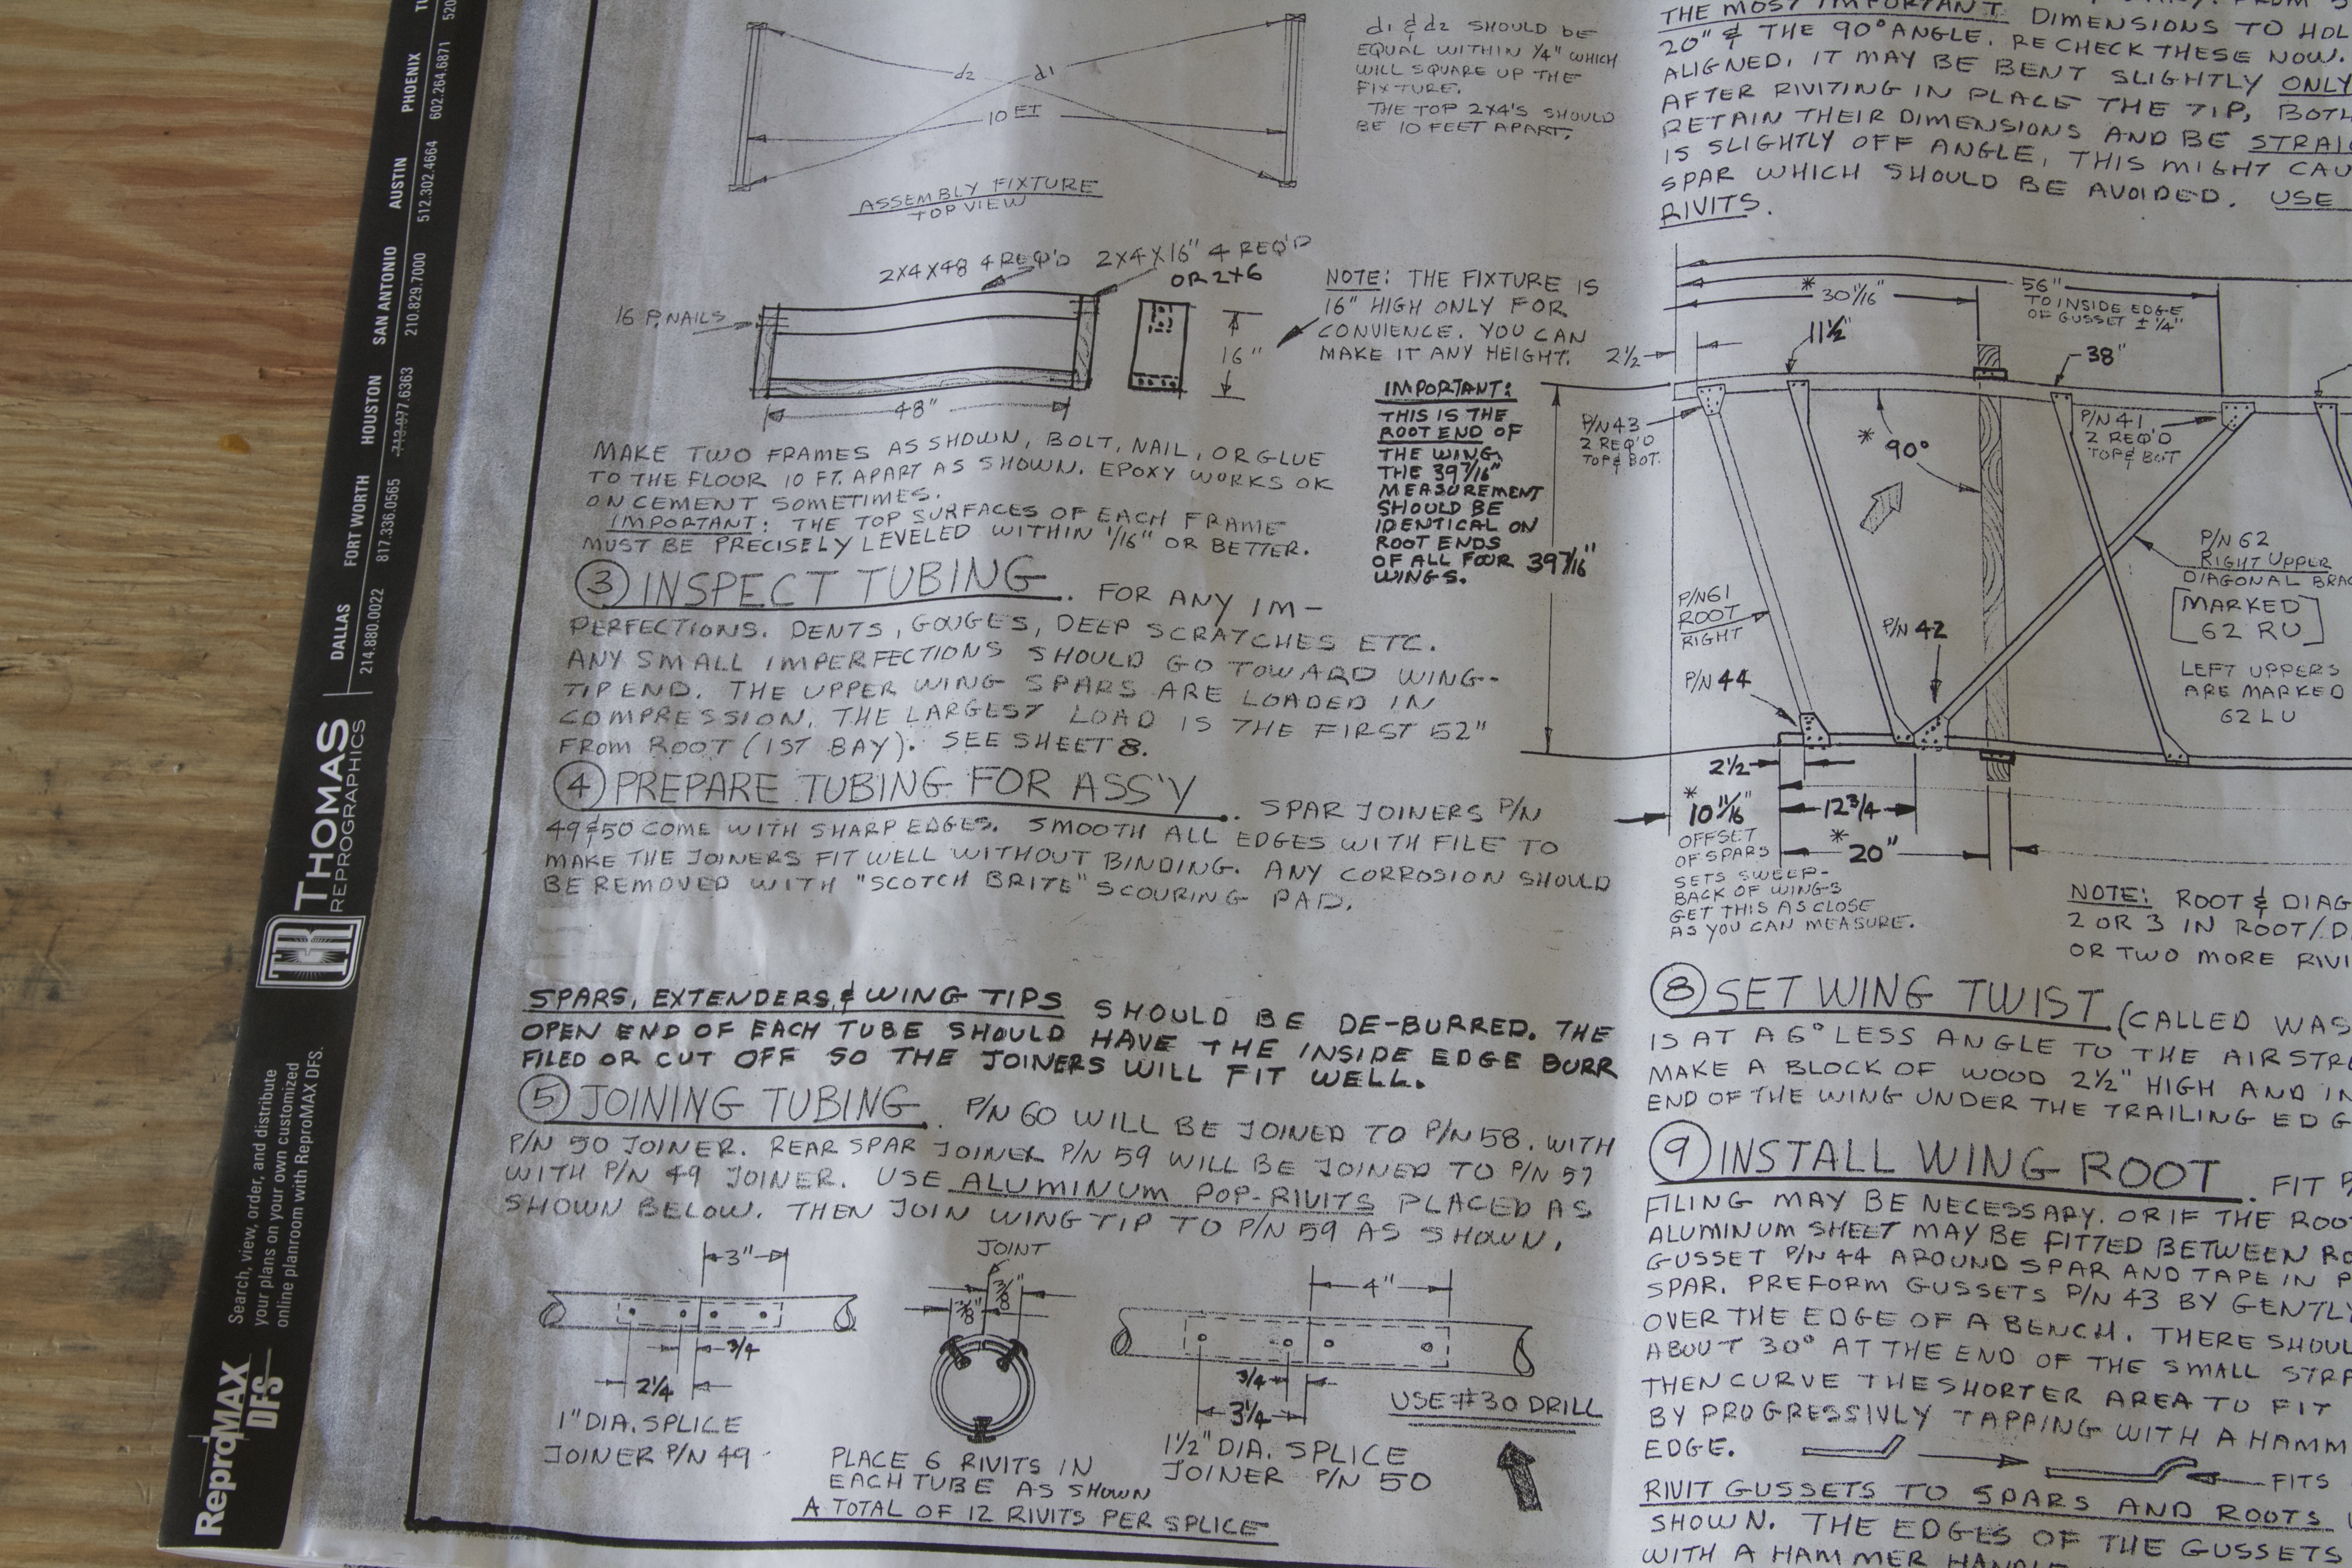 d1 & d2 SHOULD BE
EQUAL WITHIN 1/4" WHICH
WILL SQUARE UP THE
FIXTURE.
THE TOP 2X4'S SHOULD
BE 10 FEET APART.
d2
d1
10 FT
ASSEMBLY FIXTURE
TOP VIEW
2X4X48 4 REQ'D
2X4X16" 4 REQ'D
OR 2X6
16 P. NAILS
16"
48"
NOTE: THE FIXTURE IS
16" HIGH ONLY FOR
CONVIENCE. YOU CAN
MAKE IT ANY HEIGHT.
MAKE TWO FRAMES AS SHOWN, BOLT, NAIL, OR GLUE
TO THE FLOOR 10 FT. APART AS SHOWN. EPOXY WORKS OK
ON CEMENT SOMETIMES.
IMPORTANT: THE TOP SURFACES OF EACH FRAME
MUST BE PRECISELY LEVELED WITHIN 1/16" OR BETTER.
3 INSPECT TUBING. FOR ANY IM-
PERFECTIONS. DENTS, GOUGES, DEEP SCRATCHES ETC.
ANY SMALL IMPERFECTIONS SHOULD GO TOWARD WING-
TIP END. THE UPPER WING SPARS ARE LOADED IN
COMPRESSION. THE LARGEST LOAD IS THE FIRST 52"
FROM ROOT (1ST BAY). SEE SHEET 8.
4 PREPARE TUBING FOR ASS'Y. SPAR JOINERS P/N
49 & 50 COME WITH SHARP EDGES. SMOOTH ALL EDGES WITH FILE TO
MAKE THE JOINERS FIT WELL WITHOUT BINDING. ANY CORROSION SHOULD
BE REMOVED WITH "SCOTCH BRITE" SCOURING PAD.
SPARS, EXTENDERS, & WING TIPS SHOULD BE DE-BURRED. THE
OPEN END OF EACH TUBE SHOULD HAVE THE INSIDE EDGE BURR
FILED OR CUT OFF SO THE JOINERS WILL FIT WELL.
5 JOINING TUBING. P/N 60 WILL BE JOINED TO P/N 58. WITH
P/N 50 JOINER. REAR SPAR JOINER P/N 59 WILL BE JOINED TO P/N 57
WITH P/N 49 JOINER. USE ALUMINUM POP-RIVITS PLACED AS
SHOWN BELOW. THEN JOIN WING TIP TO P/N 59 AS SHOWN.
3"
3/4
2 1/4
1" DIA. SPLICE
JOINER P/N 49
JOINT
3/8"
3/8"
PLACE 6 RIVITS IN
EACH TUBE AS SHOWN
A TOTAL OF 12 RIVITS PER SPLICE
4"
3/4
3 1/4
1 1/2" DIA. SPLICE
JOINER P/N 50
USE #30 DRILL
THE MOST IMPORTANT DIMENSIONS TO HOL
20" & THE 90° ANGLE. RECHECK THESE NOW.
ALIGNED, IT MAY BE BENT SLIGHTLY ONLY
AFTER RIVITING IN PLACE THE TIP, BOTH
RETAIN THEIR DIMENSIONS AND BE STRAIG
IS SLIGHTLY OFF ANGLE, THIS MIGHT CAU
SPAR WHICH SHOULD BE AVOIDED. USE
RIVITS.
56"
TO INSIDE EDGE
OF GUSSET ± 1/4"
* 30 1/16"
11 1/2"
2 1/2
38"
P/N 43
2 REQ'D
TOP & BOT.
P/N 41
2 REQ'D
TOP & BOT
* 90°
IMPORTANT:
THIS IS THE
ROOT END OF
THE WING,
THE 39 7/16"
MEASUREMENT
SHOULD BE
IDENTICAL ON
ROOT ENDS
OF ALL FOUR
WINGS.
39 7/16"
P/N 61
ROOT
RIGHT
P/N 42
P/N 44
P/N 62
RIGHT UPPER
DIAGONAL BRAC
MARKED
62 RU
LEFT UPPERS
ARE MARKED
62 LU
2 1/2
* 10 11/16"
OFFSET
OF SPARS
SETS SWEEP-
BACK OF WINGS
GET THIS AS CLOSE
AS YOU CAN MEASURE.
12 3/4
* 20"
NOTE: ROOT & DIAG
2 OR 3 IN ROOT/D
OR TWO MORE RIVI
8 SET WING TWIST (CALLED WAS
IS AT A 6° LESS ANGLE TO THE AIRSTRE
MAKE A BLOCK OF WOOD 2 1/2" HIGH AND IN
END OF THE WING UNDER THE TRAILING EDG
9 INSTALL WING ROOT. FIT
FILING MAY BE NECESSARY. OR IF THE ROOT
ALUMINUM SHEET MAY BE FITTED BETWEEN RO
GUSSET P/N 44 AROUND SPAR AND TAPE IN P
SPAR. PREFORM GUSSETS P/N 43 BY GENTLY
OVER THE EDGE OF A BENCH. THERE SHOUL
ABOUT 30° AT THE END OF THE SMALL STRA
THEN CURVE THE SHORTER AREA TO FIT
BY PROGRESSIVLY TAPPING WITH A HAMM
EDGE.
FITS
RIVIT GUSSETS TO SPARS AND ROOTS
SHOWN. THE EDGES OF THE GUSSETS
WITH A HAMMER HANDLE
THOMAS
REPROGRAPHICS
DALLAS
214.880.0022
FORT WORTH
817.336.0565
HOUSTON
713.977.6363
SAN ANTONIO
210.829.7000
AUSTIN
512.302.4664
PHOENIX
602.264.6871
TU
520
ReproMAX
DFS
Search, view, order, and distribute
your plans on your own customized
online planroom with ReproMAX DFS.